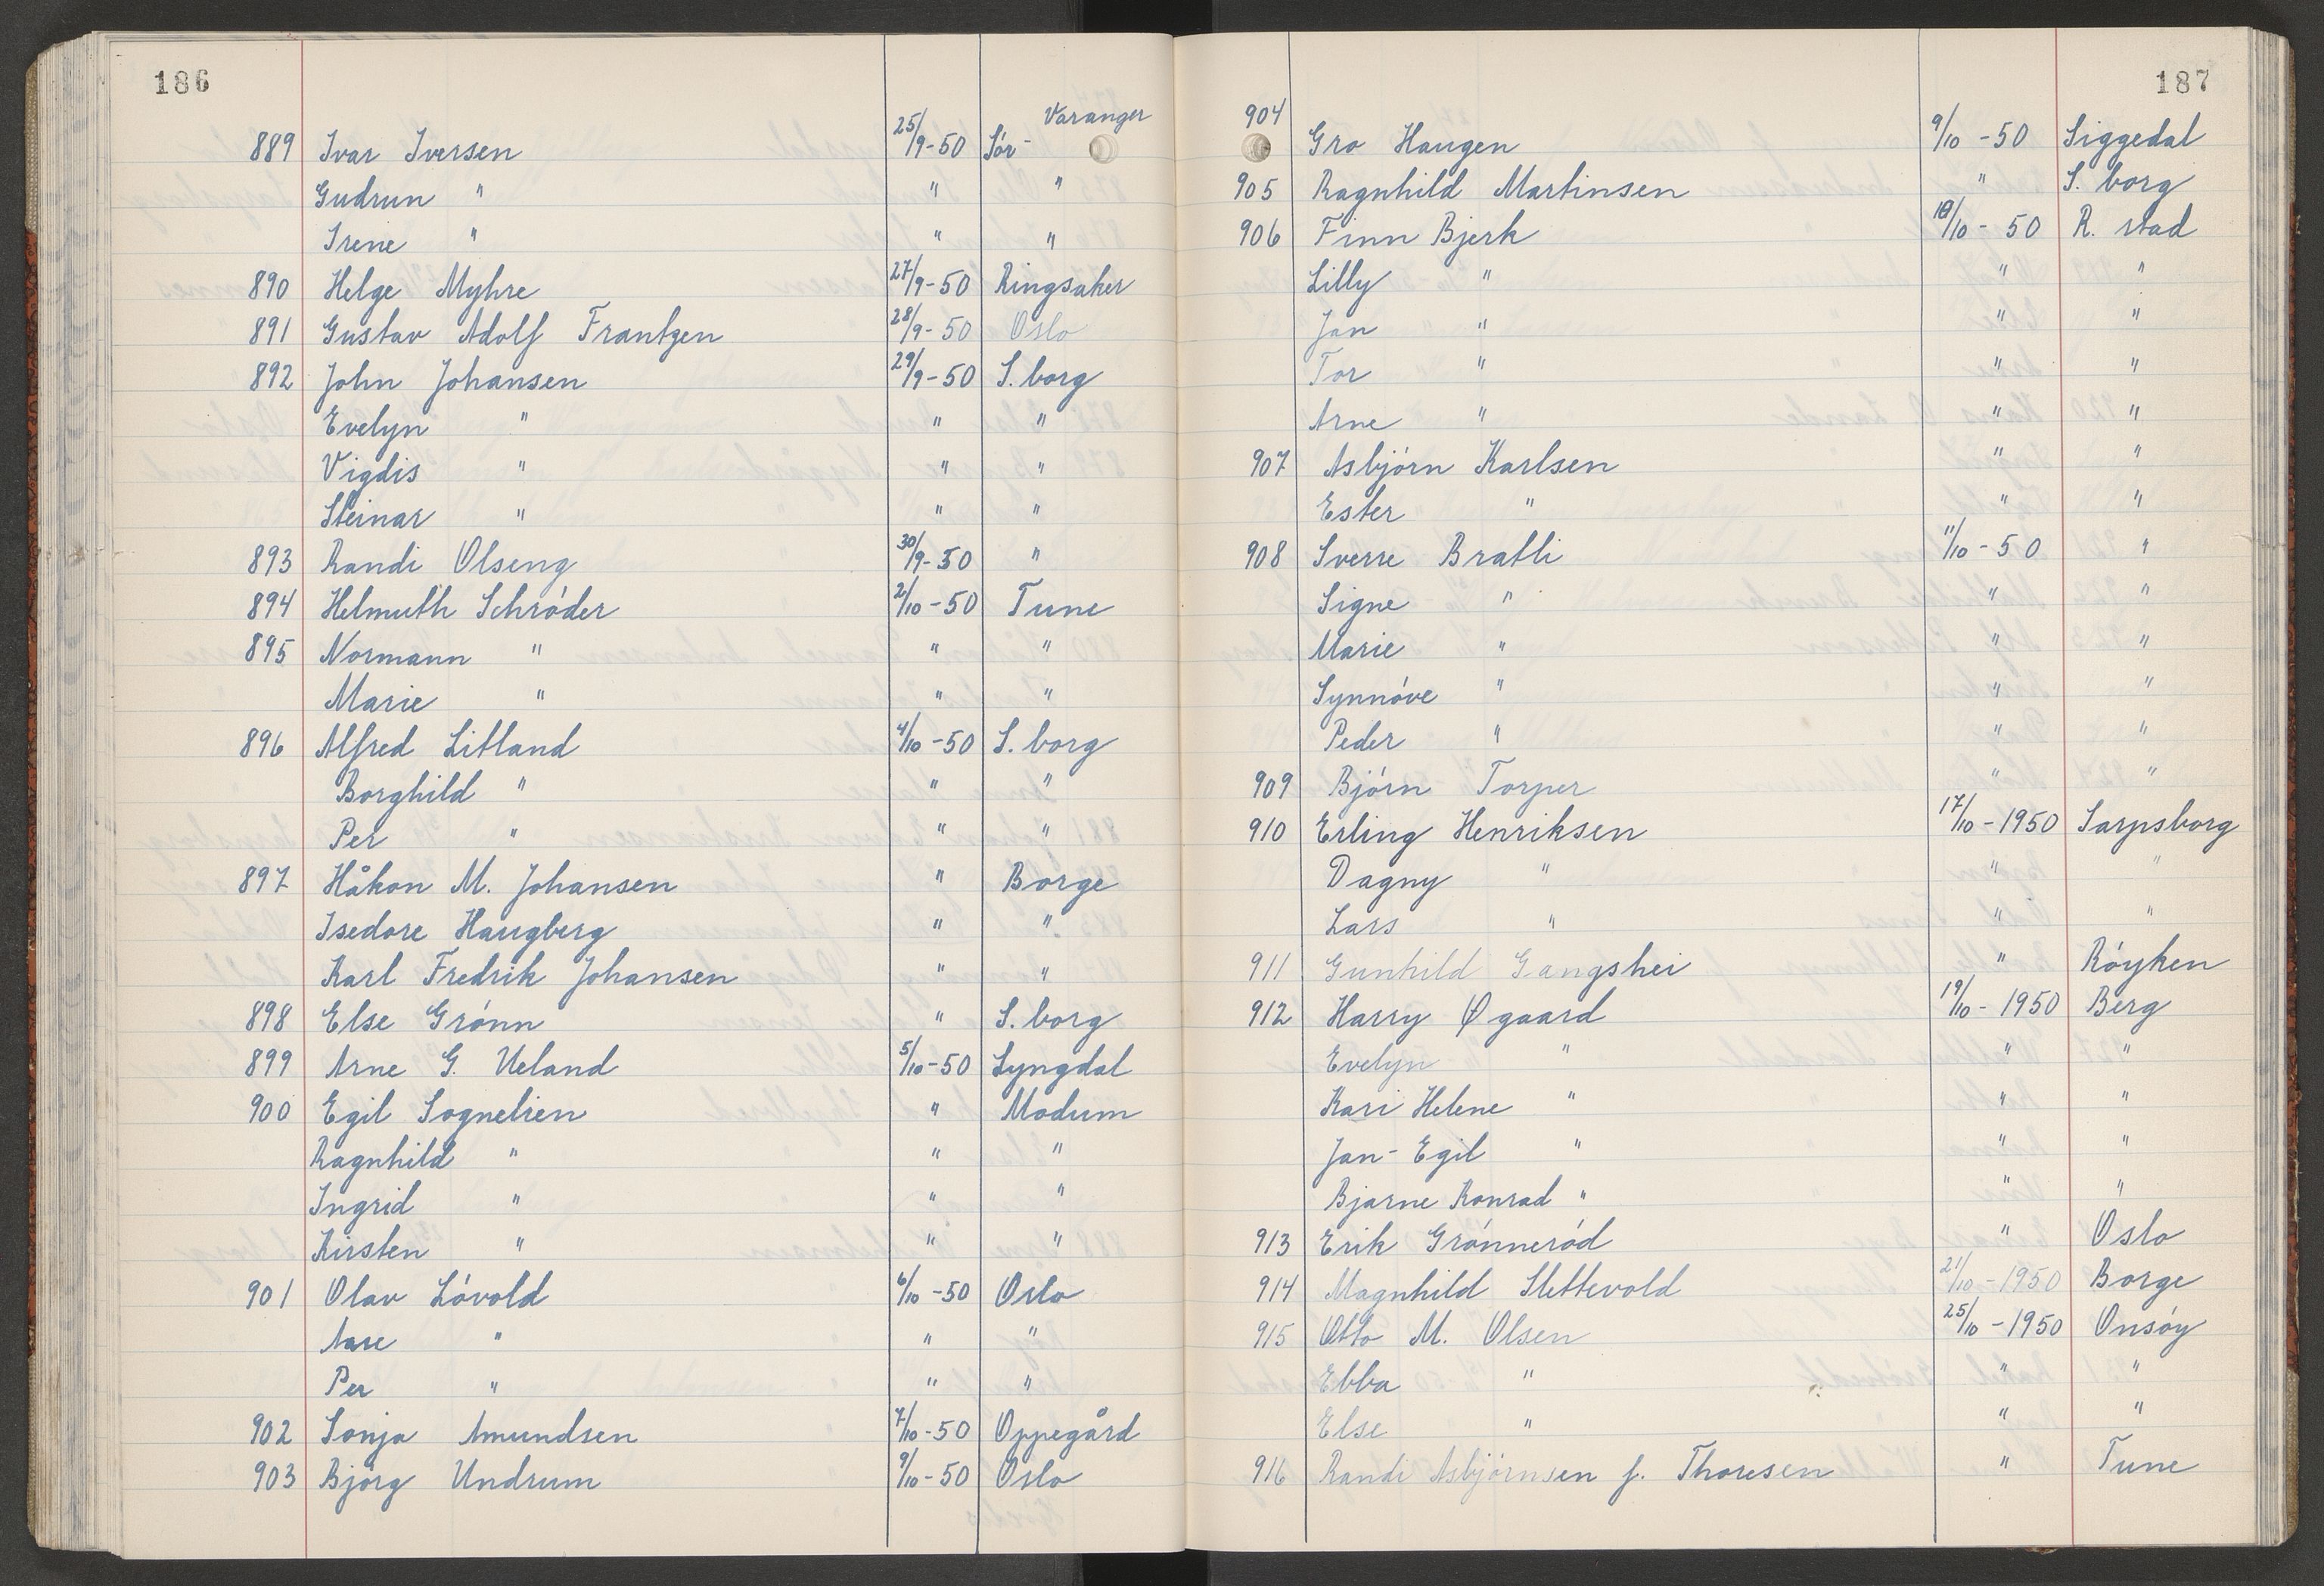 186
Varanger
889 Ivar Iversen 25/9-50 Sór-
Gudrun " " "
Irene " " "
890 Helge Myhre 27/9-50 Ringsaker
891 Gustav Adolf Frantzen 28/9-50 Oslo
892 John Johansen 29/9-50 S. borg
Evelyn " " "
Vigdis " " "
Steinar " " "
893 Randi Olseng 30/9-50 "
894 Helmuth Schróder 2/10-50 Tune
895 Normann " " "
Marie " " "
896 Alfred Litland 4/10-50 S. borg
Borghild " " "
Per " " "
897 Håkon M. Johansen " Borge
Isedore Haugberg " "
Karl Fredrik Johansen " "
898 Else Grónn " S. borg
899 Arne G. Ueland 5/10-50 Lyngdal
900 Egil Sognelien " Modum
Ragnhild " " "
Ingrid " " "
Kirsten " " "
901 Olav Lóvold 6/10-50 Oslo
Aase " " "
Per " " "
902 Sonja Amundsen 7/10-50 Oppegård
903 Bjórg Undrum 9/10-50 Oslo
187
904 Gro Haugen 9/10-50 Siggedal
905 Ragnhild Martinsen " S. borg
906 Finn Bjerk 10/10-50 R. stad
Lilly " " "
Jan " " "
Tor " " "
Arne " " "
907 Asbjórn Karlsen " "
Ester " " "
908 Sverre Bratli 11/10-50 "
Signe " " "
Marie " " "
Synnóve " " "
Peder " " "
909 Bjórn Torper " "
910 Erling Henriksen 17/10-1950 Sarpsborg
Dagny " " "
Lars " " "
911 Gunhild Gangshei " Róyken
912 Harry Øgaard 19/10-1950 Berg
Evelyn " " "
Kari Helene " " "
Jan-Egil " " "
Bjarne Konrad " " "
913 Erik Grónneród " Oslo
914 Magnhild Slettevold 21/10-1950 Borge
915 Otto M. Olsen 25/10-1950 Onsóy
Ebba " " "
Else " " "
916 Randi Asbjórnsen f. Thoresen " Tune